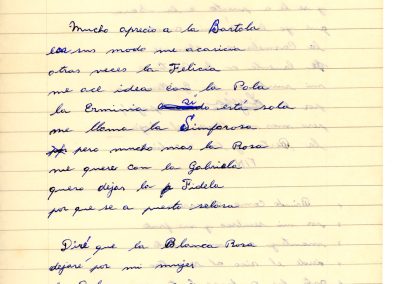 Mucho aprecio a la Bartola
con sus modo me acaricia
otras veces la Felicia
me ací idea con la Pola
la Erminia si está sola
me llama la Sinforosa
pero mucho mas la Rosa
me quere con la Gabriela
quero dejar la Fidela
por que se a puesto selosa
Diré que la Blanca Rosa
dejaré por mi mujer